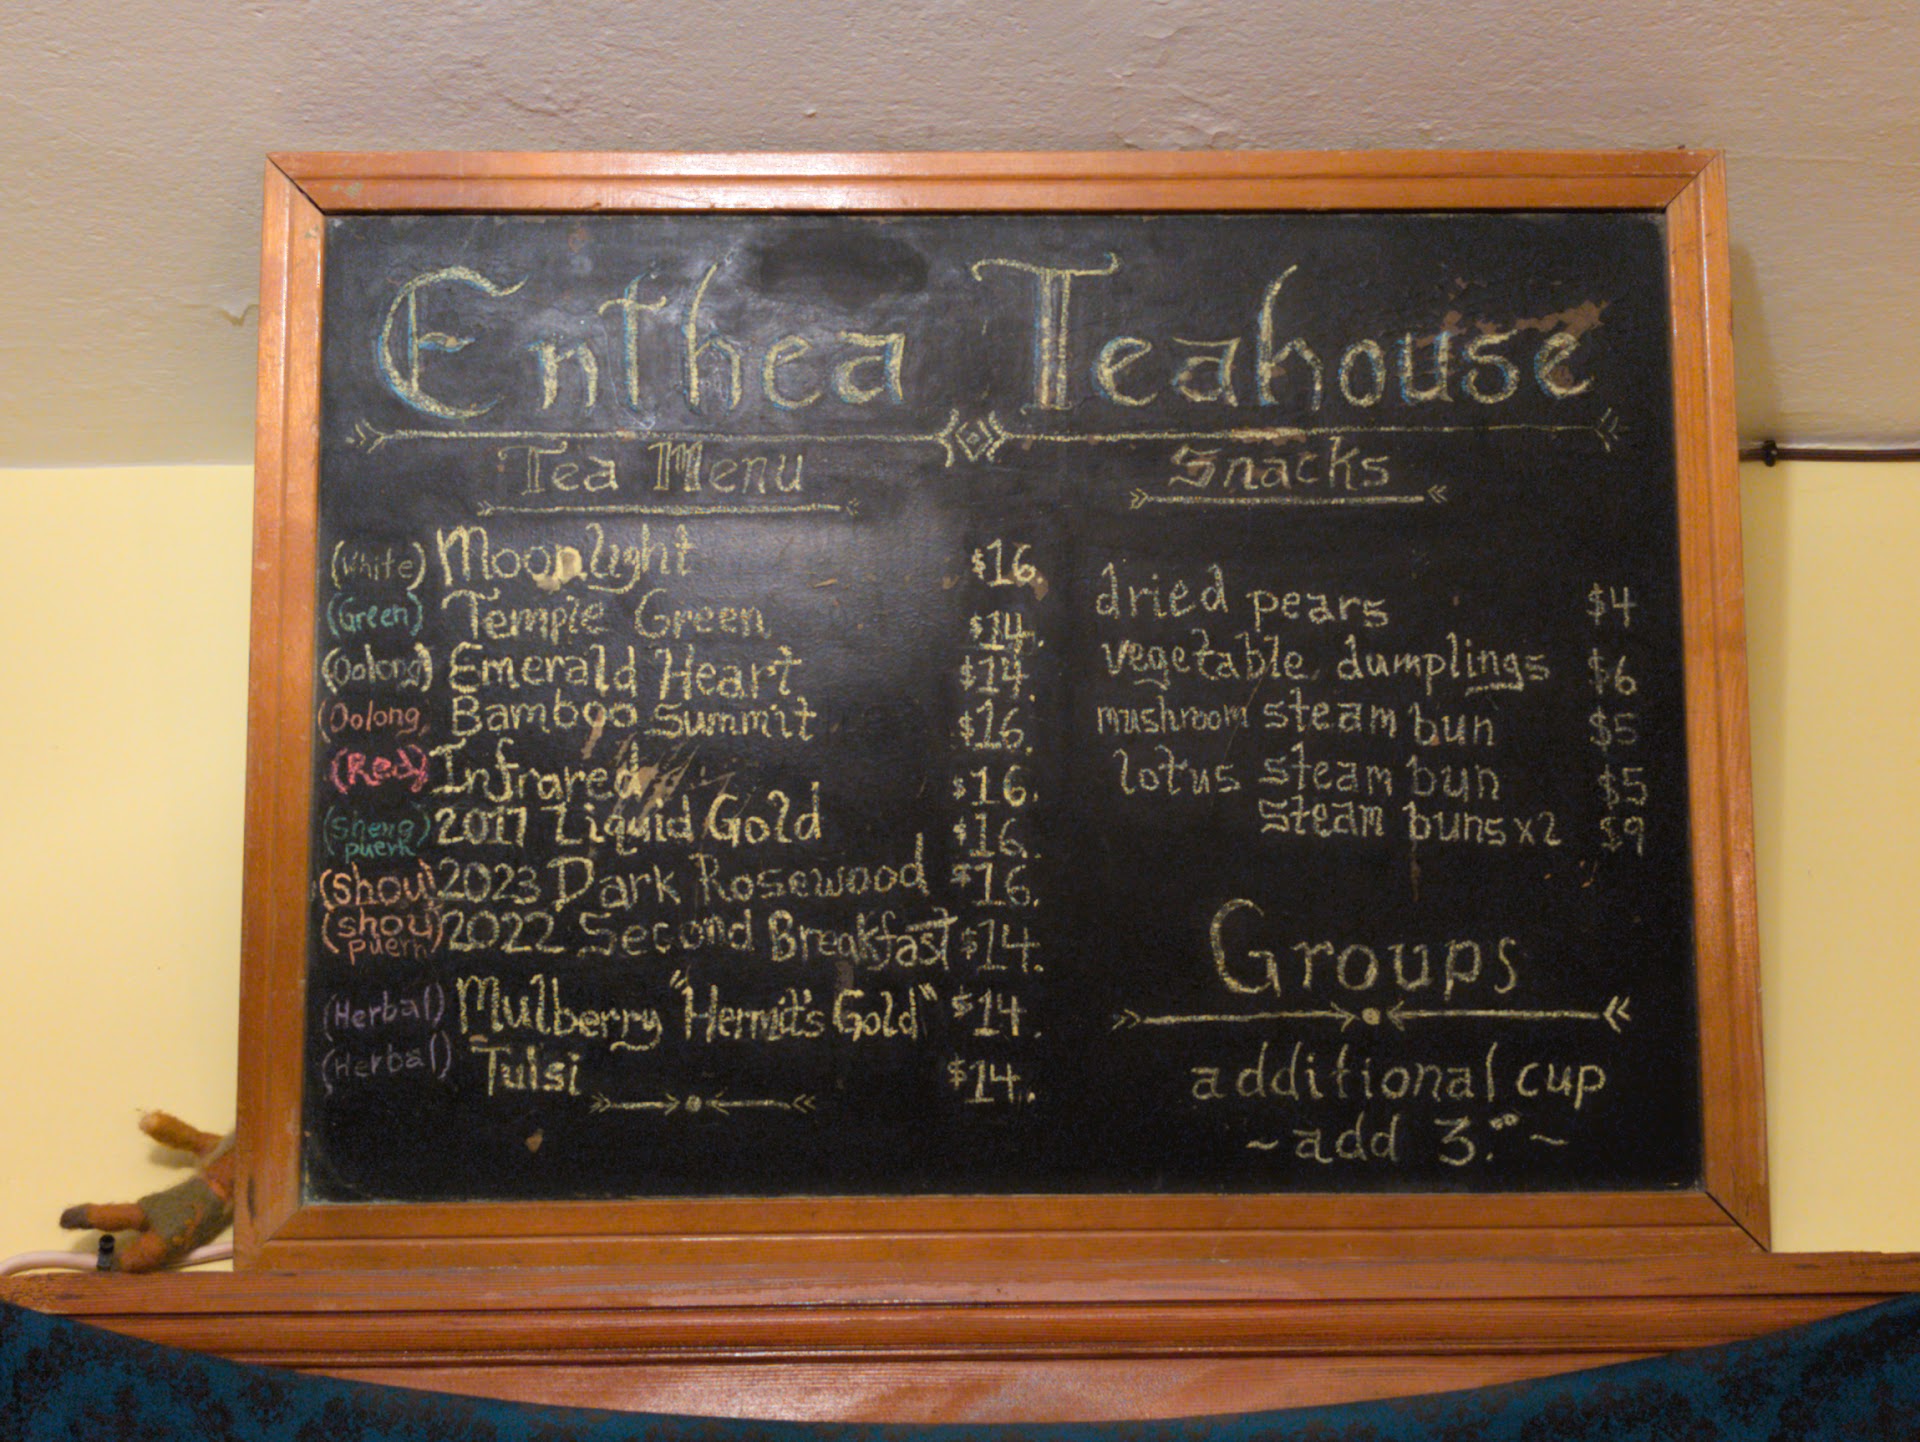 Enthea Teahouse
Tea Menu
(White) Moonlight $16.
(Green) Temple Green $14.
(Oolong) Emerald Heart $14.
(Oolong) Bamboo Summit $16.
(Red) Infrared $16.
(Sheng puerh) 2017 Liquid Gold $16.
(Shou) 2023 Dark Rosewood $16.
(shou puerh) 2022 Second Breakfast $14.
(Herbal) Mulberry "Hermit's Gold" $14.
(Herbal) Tulsi $14.
Snacks
dried pears $4
vegetable dumplings $6
mushroom steam bun $5
lotus steam bun $5
steam buns x2 $9
Groups
additional cup
~add 3.00~